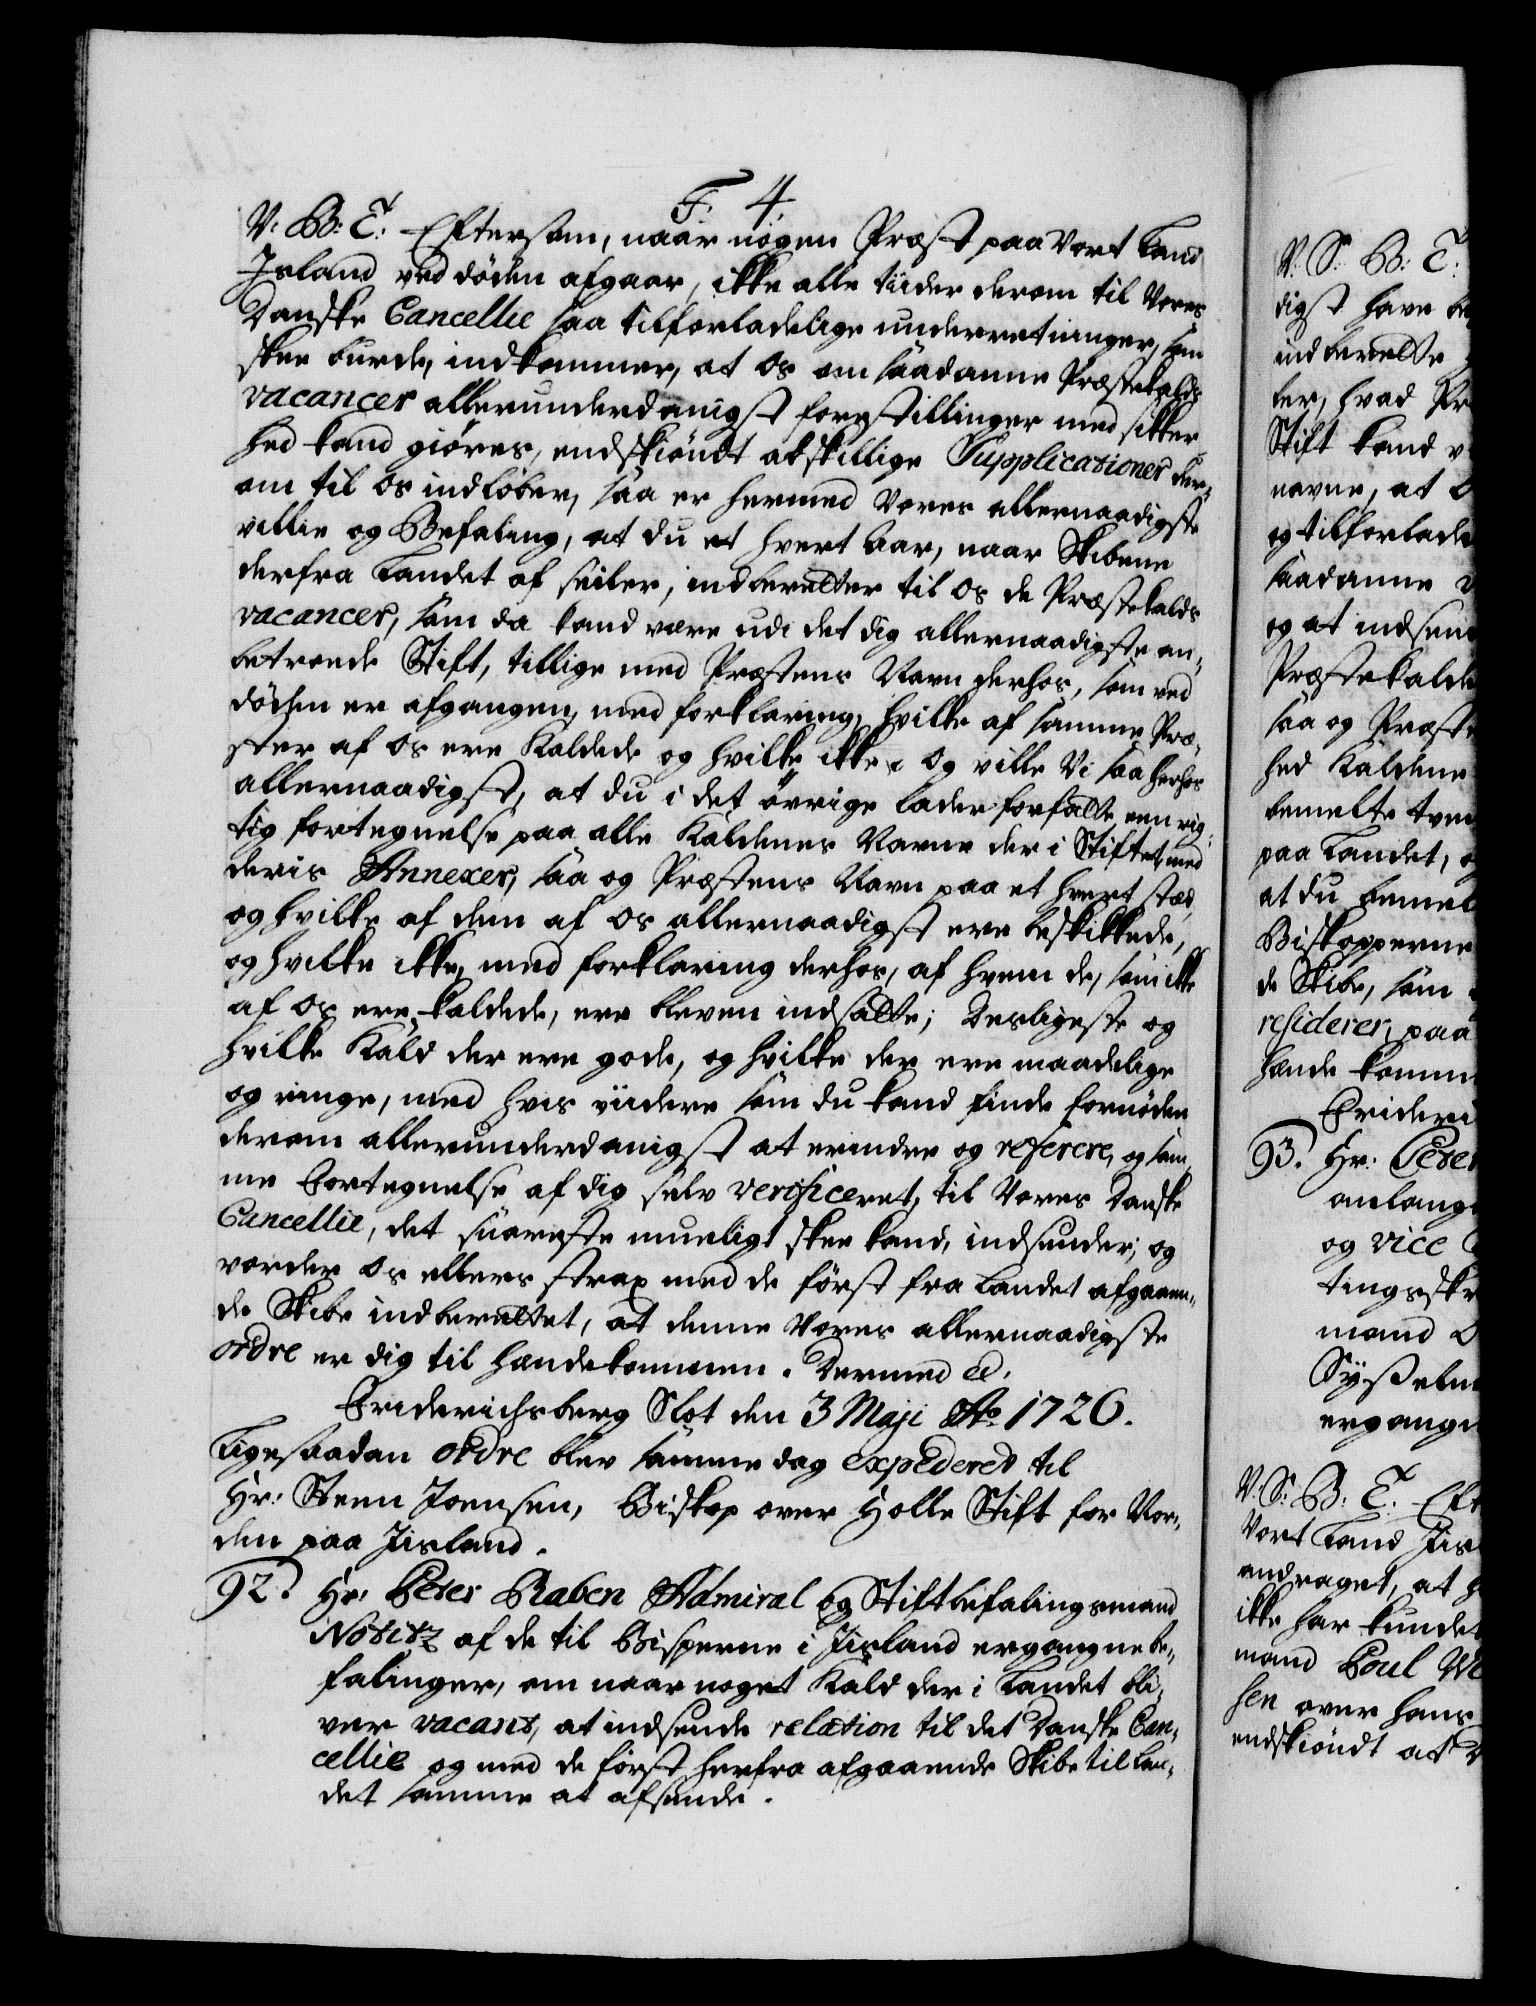 F. 4.
V: B: T: Eftersom, naar nogen Præst paa Vort Land
Island ved döden afgaar, ikke alle tiider derom til Vores
Danske Cancellie saa tilforladelige underretninger, som
skee burde, indkommer, at Os om saadanne Præstekalds
vacancer allerunderdanigst forestillinger med sikker
hed kand giöres, endskiöndt adskillige Supplicationer der,,
om til Os indlöber, saa er hermed Vores allernaadigste
villie og Befaling, at du et hvert Aar, naar Skibene
derfra Landet af seiler, indberetter til Os de Præstekalds
vacancer, som da kand være udi det dig allernaadigste an,,
betroede Stift, tillige med Præstens Navn derhos, som ved
döden er afgangen, med forklaring, hvilke af samme Præ,,
ster af Os ere Kaldede og hvilke ikke, og ville Vi saa herhos
allernaadigst, at du i det övrige lader forfatte een rig,,
tig fortegnelse paa alle Kaldenes Navne der i Stiftet, med
deris Annexer, saa og Præstens Navn paa et hvert stæd,
og hvilke af dem af Os allernaadigst ere beskikkede,
og hvilke ikke, med forklaring derhos, af hvem de, som ikke
af Os ere kaldede, ere bleven indsatte; Desligeste og
hvilke Kald der ere gode, og hvilke der ere maadelige
og ringe, med hvis viidere som du kand finde fornöden
derom allerunderdanigst at erindre og referere, og sam,,
me Fortegnelse af dig selv verificeret, til Vores Danske
Cancellie, det snareste mueligt skee kand, indsender; og
vorder Os ellers strax med de först fra Landet afgaaen,,
de Skibe indberettet, at denne Vores allernaadigste
ordre er dig til hændekommen. Dermed etc.
Friderichsberg Slot den 3 Maji Ao 1726.
Ligesaadan ordre blev samme dag expederet til
Hr: Steen Joensen, Biskop over Holle Stift for Nor,,
den paa Iisland.
92. Hr: Peter Raben Admiral og Stiftbefalingsmand
Notitz af de til Bisperne i Iisland ergangne be,,
falinger, om naar noget Kald der i Landet bli,,
ver vacant, at indsende relation til det Danske Can,,
cellie og med de först herfra afgaaende Skibe til Lan,,
det samme at afsende.
V: S: B: T:
digst have be
indberette
ter, hvad Pr
Stift kand v
navne, at
og tilforlade
saadanne
og at indsen
Præstekalde
saa og Præste
hed Kaldene
bemelte tven
paa Landet,
at du bemel
Biskopperne
de Skibe, som
residerer, paa
hænde komm
Frideri
93. Hr: Peter
anlang
og vice
tingsskr
mand
Sysselm
ergange
V: S: B: T: Eft
Vort Land Iis
andraget, at
ikke har kundet
mand Poul
sen over hans
endskiöndt at